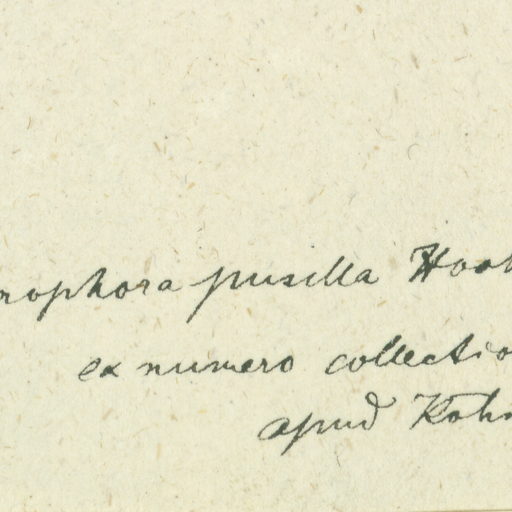 rophora pusilla Hook
ex numero collectio
apud Kohn